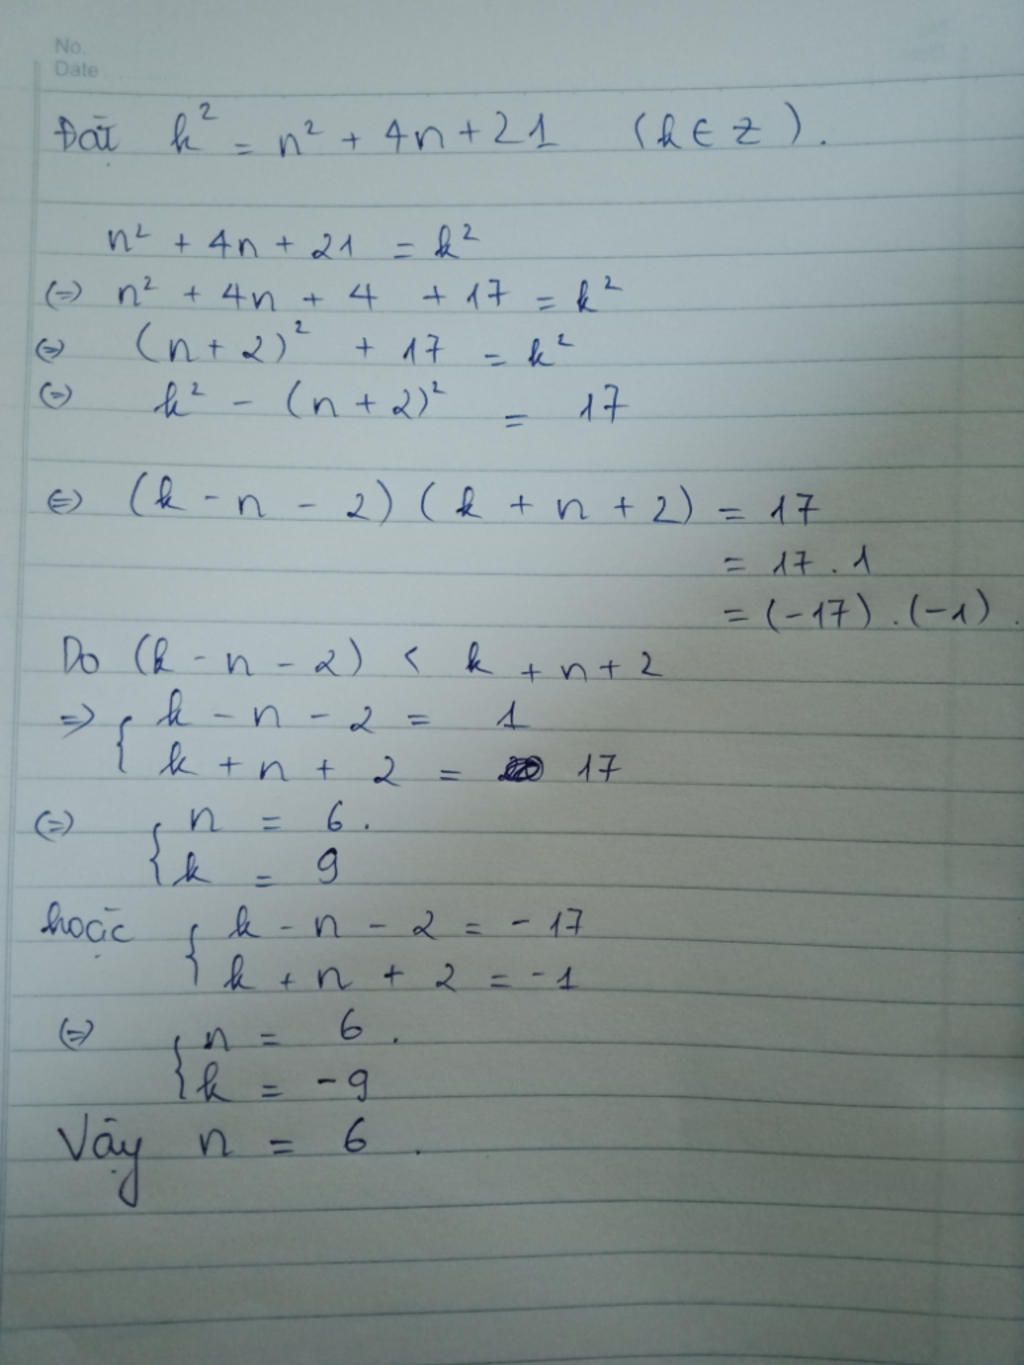 No.
Date
Đặt k² = n² + 4n + 21 (k ∈ z).
n² + 4n + 21 = k²
(=) n² + 4n + 4 + 17 = k²
(=) (n + 2)² + 17 = k²
(=) k² - (n + 2)² = 17
(=) (k - n - 2)(k + n + 2) = 17
= 17 . 1
= (-17) . (-1) .
Do (k - n - 2) < k + n + 2
=> { k - n - 2 = 1
k + n + 2 = 17
(=) { n = 6 .
k = 9
hoặc { k - n - 2 = - 17
k + n + 2 = - 1
(=) { n = 6 .
k = - 9
Vậy n = 6 .